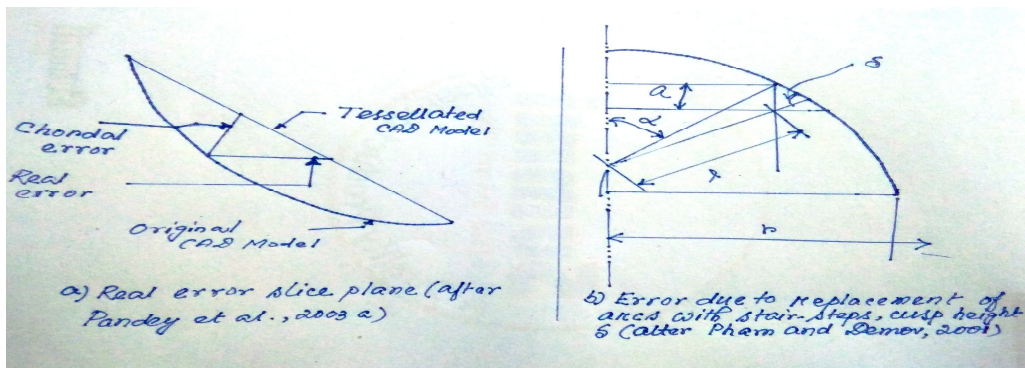 Chordal
error
Real
error
Tessellated
CAD Model
Original
CAD Model
a) Real error slice plane (after
Pandey et al., 2003 a)
δ
a
α
r
b) Error due to replacement of
arcs with stair-steps, cusp height
δ (after Pham and Demov, 2001)